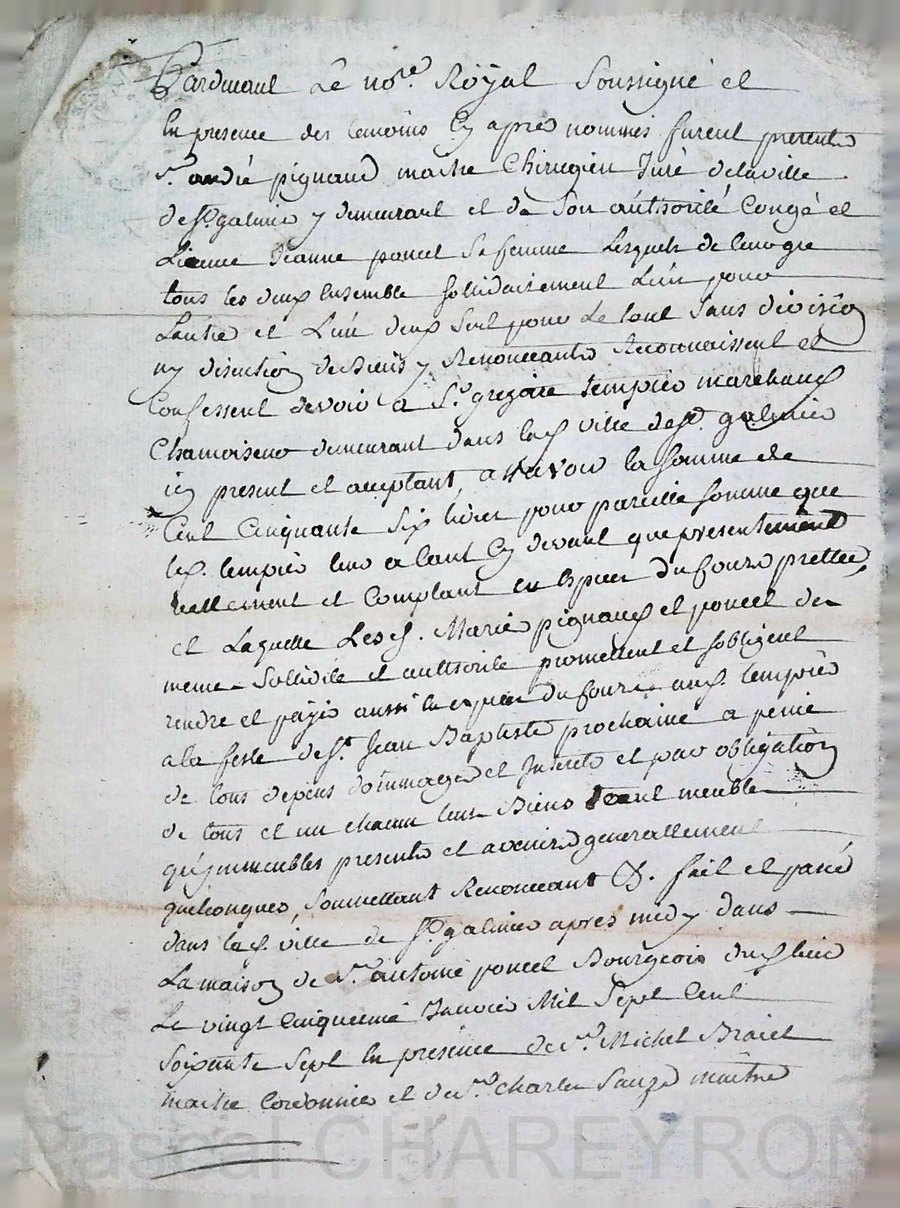 Pardevant Le nore. Royal Soussigné et
En presence des temoins Cy apres nommés furent presents
sr. andré pignaud maitre Chirugien Juré de la ville
de st. galmier y demeurant et de Son authorité Congé et
Licence Jeanne poncet Sa femme Lesquels de leur gre
tous les deux Ensemble sollidairement L'un pour
Lautre et L'un deux seul pour Le tout Sans division
ny discution de Biens y Renonceants Reconnaissent et
Confessent devoir a Sr. gregoire tempier marchand
Chamoiseur demeurant dans lad. ville de st. galmier
icy present et acceptant, a scavoir la somme de
Cent Cinquante Six livres pour pareille somme que
led. tempier leur a tant Cy devant que presentement
reellement et Comptant en Espèces du Cours prettée,
et Laquelle Lesd. Mariés pignaud et poncet de
meme Sollidité et authorité promettent et sobligent
rendre et payer aussi en espèces du Cours aud. tempier
a la feste de st. Jean Baptiste prochaine a peine
de tous depens dommages et Interets et par obligation
de tous et un chacun leurs Biens tant meubles
qu'immeubles presents et avenirs generallement
quelconques, Soumettant Renonceant &. fait et passé
dans lad. ville de st. galmier apres midy dans
La maison de Sr. antoine poncet Bourgeois dud. lieu
Le vingt Cinquieme Janvier Mil Sept Cent
Soixante Sept En presence de sr. Michel
maitre Cordonnier et de sr. Charles Sauze maitre
Pascal CHAREYRON